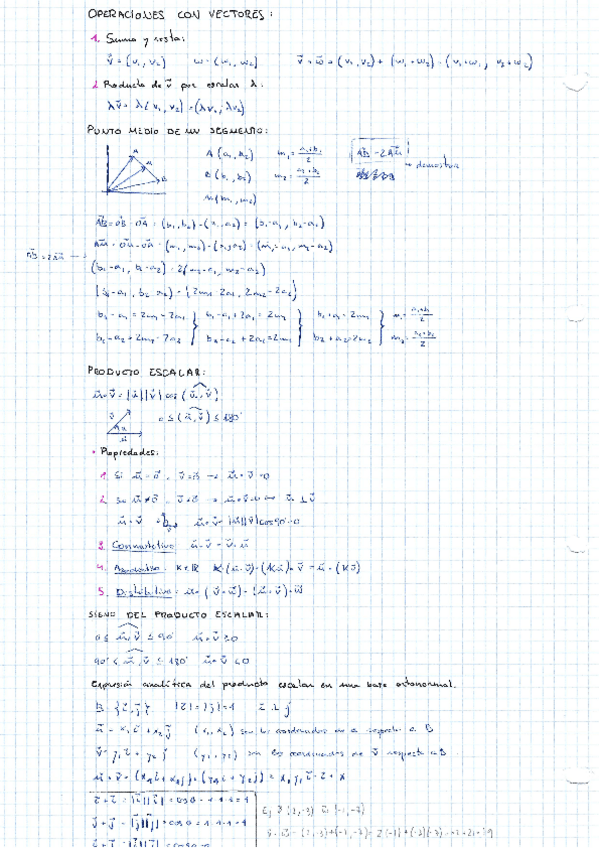 OPERACIONES CON VECTORES:
1. Suma y resta:
v⃗ = (v₁, v₂) w = (w₁, w₂) v⃗ + w⃗ = (v₁, v₂) + (w₁, w₂) = (v₁+w₁, v₂+w₂)
2. Producto de v⃗ por escalar λ:
λv⃗ = λ(v₁, v₂) = (λv₁, λv₂)
PUNTO MEDIO DE UN SEGMENTO:
A (a₁, a₂) m₁ = a₁+b₁/2 AB = 2AM → demostrar
B (b₁, b₂) m₂ = a₂+b₂/2
M (m₁, m₂)
AB = OB - OA = (b₁, b₂) - (a₁, a₂) = (b₁-a₁, b₂-a₂)
AM = OM - OA = (m₁, m₂) - (a₁, a₂) = (m₁-a₁, m₂-a₂)
AB = 2AM → (b₁-a₁, b₂-a₂) = 2(m₁-a₁, m₂-a₂)
(b₁-a₁, b₂-a₂) = (2m₁-2a₁, 2m₂-2a₂)
b₁-a₁ = 2m₁-2a₁ } b₁-a₁+2a₁ = 2m₁ } b₁+a₁ = 2m₁ } m₁ = a₁+b₁/2
b₂-a₂ = 2m₂-2a₂ } b₂-a₂+2a₂ = 2m₂ } b₂+a₂ = 2m₂ } m₂ = a₂+b₂/2
PRODUCTO ESCALAR:
u⃗ · v⃗ = |u⃗||v⃗| cos (u⃗, v⃗)
0 ≤ (u⃗, v⃗) ≤ 180°
• Propiedades:
1. Si u⃗ = 0⃗, v⃗ = 0⃗ → u⃗ · v⃗ = 0
2. Si u⃗ ≠ 0⃗, v⃗ ≠ 0⃗ → u⃗ · v⃗ = 0 ⟺ u⃗ ⊥ v⃗
u⃗ · v⃗ u⃗ · v⃗ = |u⃗||v⃗| cos 90° = 0
3. Conmutativa: u⃗ · v⃗ = v⃗ · u⃗
4. Asociativa: K∈ℝ K(u⃗ · v⃗) = (Ku⃗) · v⃗ = u⃗ · (Kv⃗)
5. Distributiva: u⃗ · (v⃗ + w⃗) = (u⃗ · v⃗) + w⃗
SIGNO DEL PRODUCTO ESCALAR:
0 ≤ u⃗, v⃗ ≤ 90° u⃗ · v⃗ ≥ 0
90° < u⃗, v⃗ ≤ 180° u⃗ · v⃗ < 0
Expresión analítica del producto escalar en una base ortonormal.
B = {i⃗, j⃗} |i⃗| = |j⃗| = 1 i⃗ ⊥ j⃗
u⃗ = x₁i⃗ + x₂j⃗ (x₁, x₂) son las coordenadas de u⃗ respecto a B
v⃗ = y₁i⃗ + y₂j⃗ (y₁, y₂) son las coordenadas de v⃗ respecto a B
u⃗ · v⃗ = (x₁i + x₂j) · (y₁i + y₂j) = x₁y₁ i⃗ · i⃗ + x
i⃗ · i⃗ = |i⃗||i⃗| · cos 0 = 1·1·1 = 1
j⃗ · j⃗ = |j⃗||j⃗| · cos 0 = 1·1·1 = 1